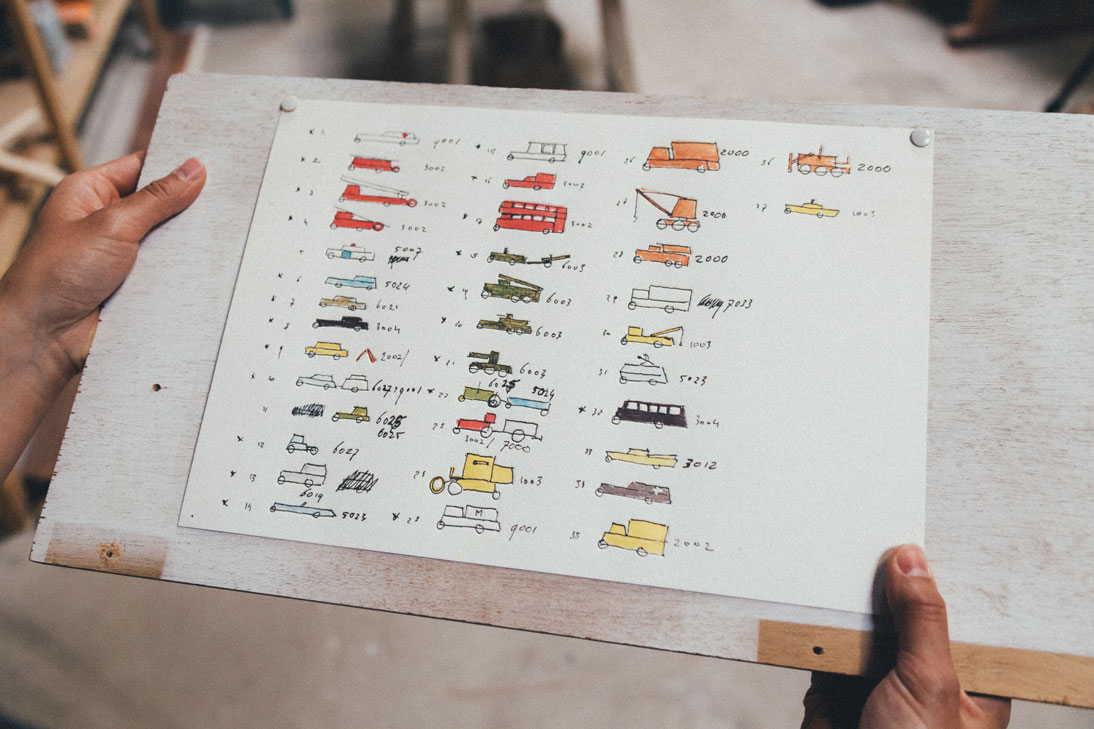 * 1 9001
* 2 3002
* 3 3002
* 4 3002
5007
* 6 5024
* 7 6021
* 8 3004
* 9 2002/
* 10 6027/9001
11 6025
6025
* 12 6027
* 13
6019
* 14 5023
* 15 9001
* 16 3002
* 17 3002
* 18 6003
* 19 6003
* 20 6003
* 21 6003
* 22 6025 5024
23 3002/ 7000
1003
M
9001
26 2000
27 2000
28 2000
29 7033
30 1003
31 5023
* 32 3004
33 3012
35 2002
36 2000
37 1003